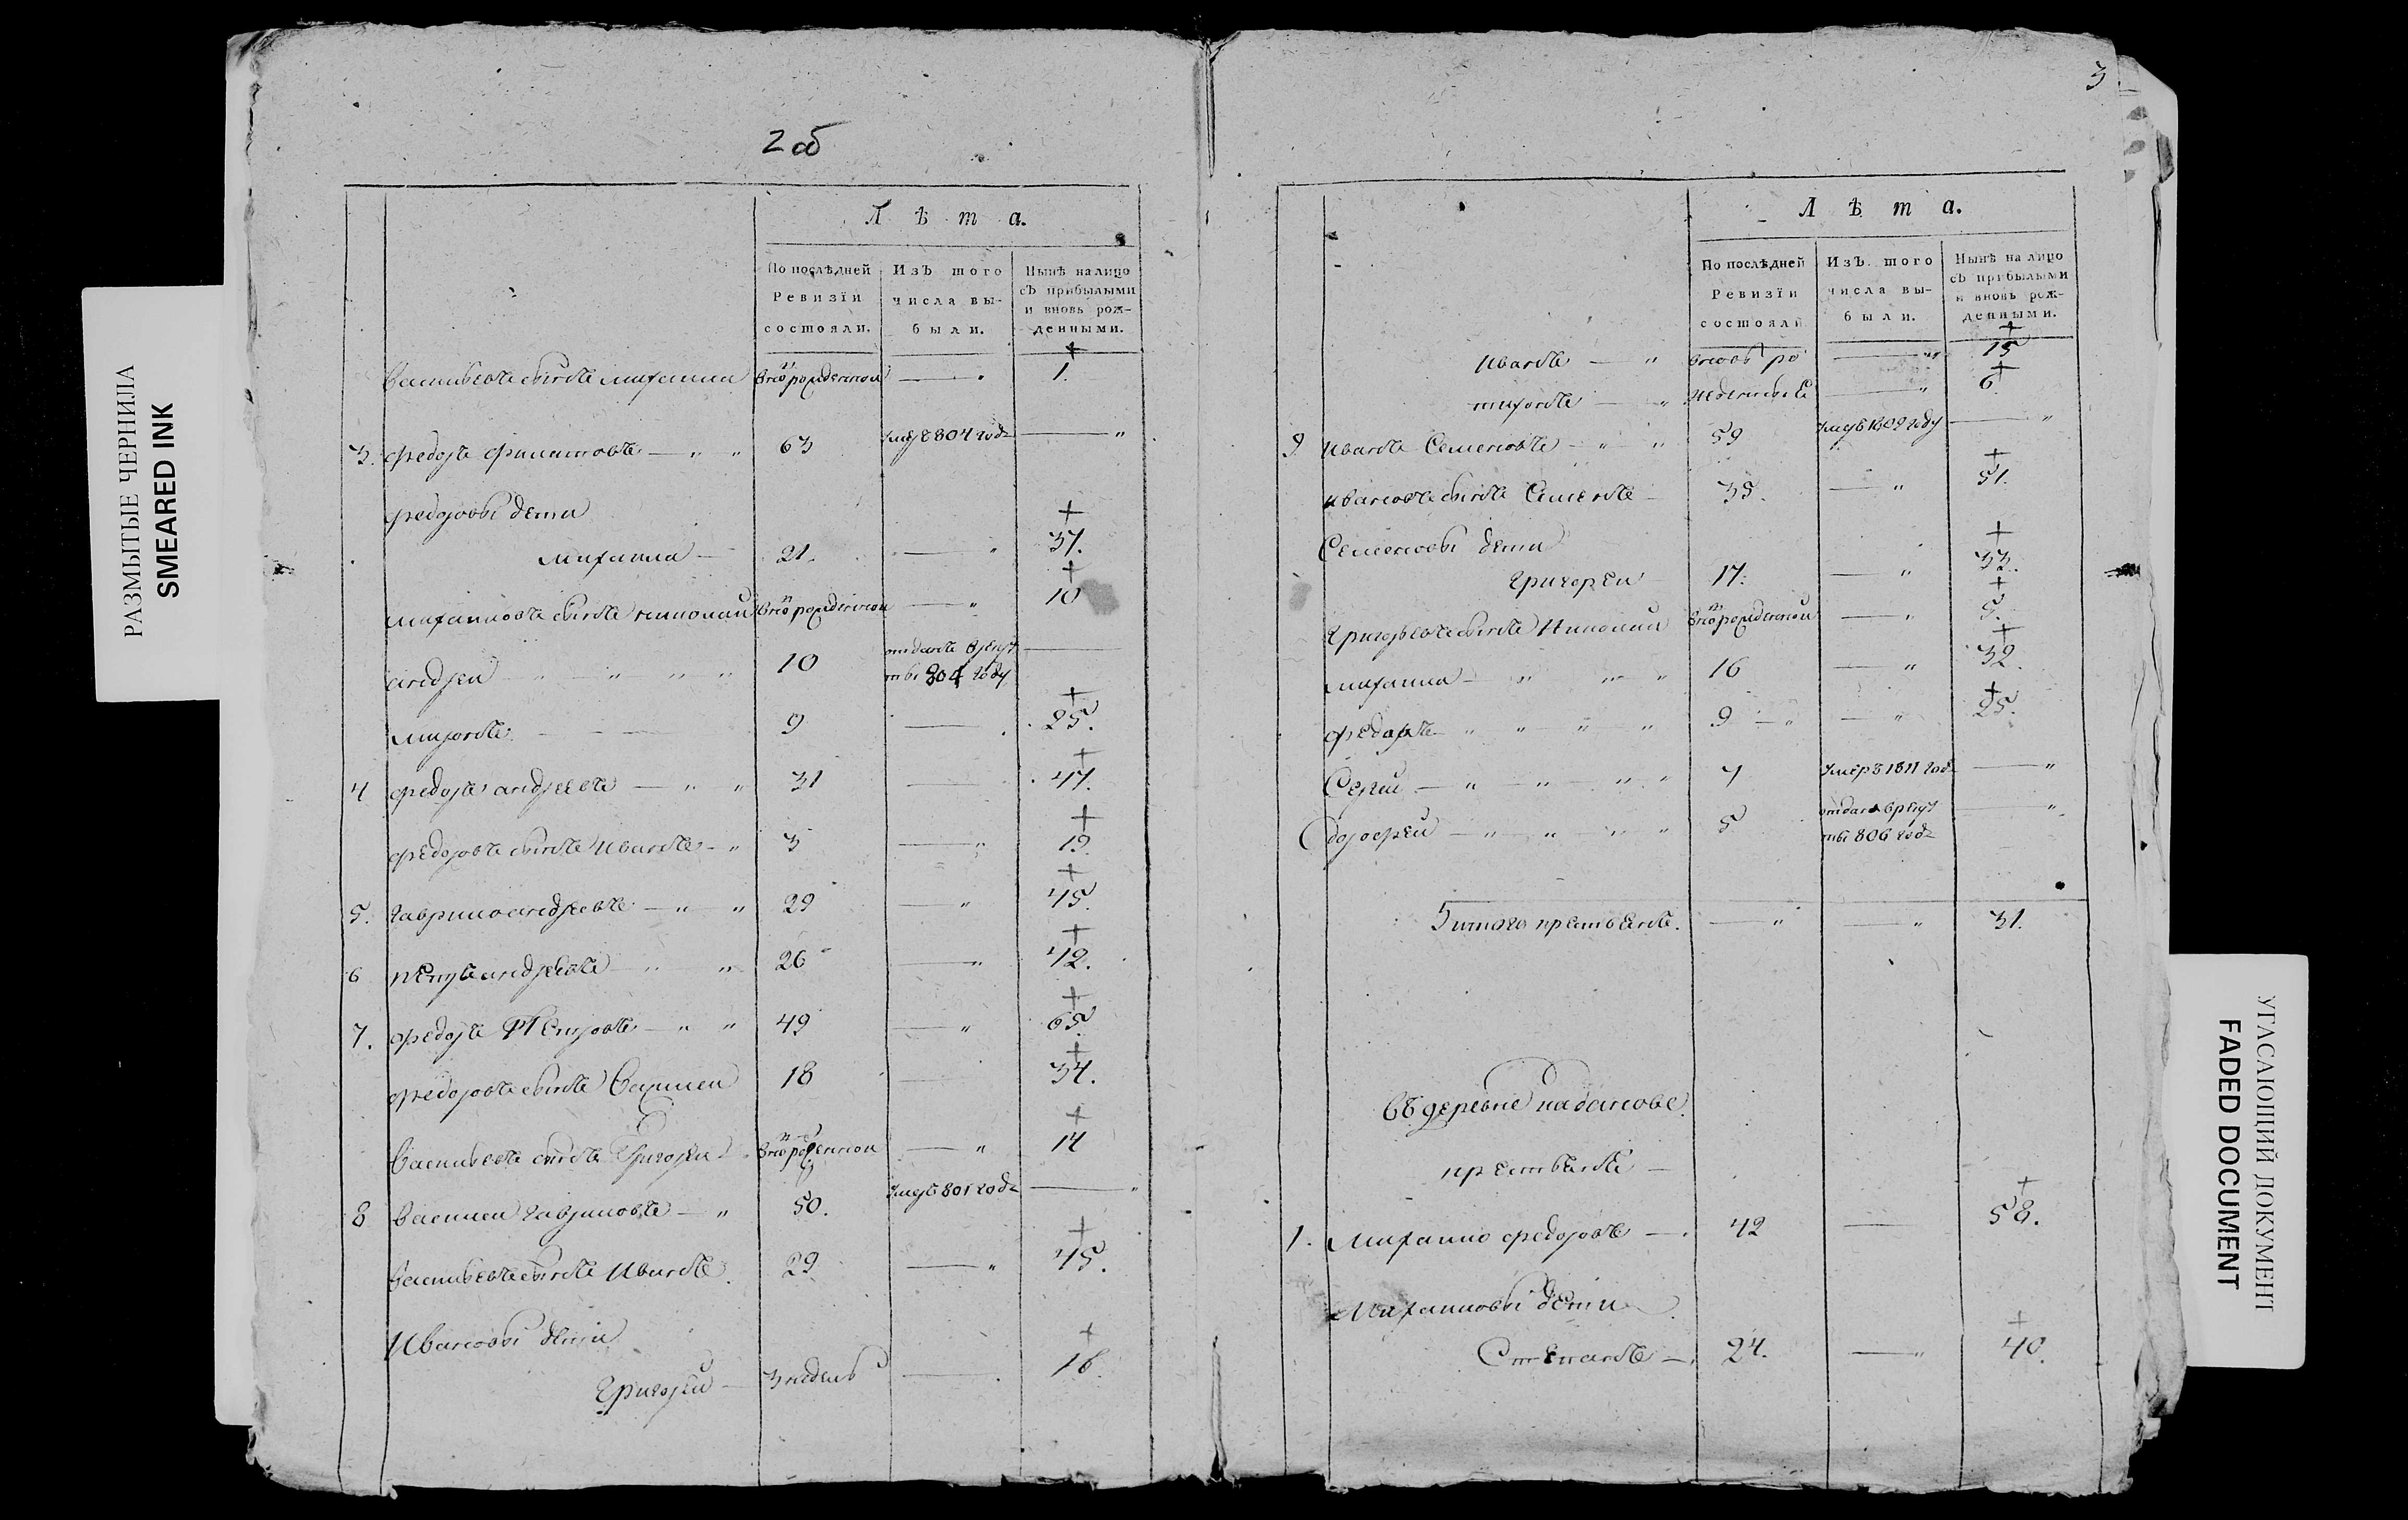 РАЗМЫТЫЕ ЧЕРНИЛА
SMEARED INK
2 об
Лѣта.
По послѣдней Ревизїи состояли.
Изъ того числа выбыли.
Нынѣ на лицо съ прибылыми и вновь рожденными.
Васильевъ сынъ михаила вно рожденной — 1.
3. федоръ филатовъ — 63 умеръ 804 годъ —
федоровы дети
михаила — 21. — 37.
михаиловъ сынъ николай вно рожденной — 10
андрей 10 отданъ врекруты 804 году —
миронъ 9 — 25.
4 федоръ андреевъ — 31 — 47.
федоровъ сынъ Иванъ — 3 — 19
5. гаврило андреевъ — 29 — 45.
6 петръ андреевъ 26 — 42.
7. федоръ Петровъ — 49 — 65.
федоровъ сынъ Василей 18 34.
Васильевъ сынъ Григорей вно роженной — 14
8 Василей гавриловъ — 50. умеръ 801 годъ —
Васильевъ сынъ Иванъ 29 — 45.
Ивановы дети
Григорей — 3 недель — 16.
3.
Лѣта.
По послѣдней Ревизїи состояли
Изъ того числа выбыли.
Нынѣ на лицо съ прибылыми и вновь рожденными.
Иванъ — вновь ро — 15
тихонъ — жденные — 6.
9 Иванъ Семеновъ — 59 умеръ 1809 году —
Ивановъ сынъ Семенъ — 35. — 51.
Семеновы дети
Григорей — 17. — 33.
Григорьевъ сынъ Николай вно рожденной — 5.
михаила — 16 — 32.
федаръ 9 — 25.
Сергей — 7 умеръ 1811 годъ —
дорофей — 5 отданъ врекруты 806 годъ —
итого крестьянъ. — — 31.
въ деревне
крестьянъ —
1. Михаило федоровъ — 42 — 58.
Михаиловы дети
Степанъ — 24. — 40.
УГАСАЮЩИЙ ДОКУМЕНТ
FADED DOCUMENT